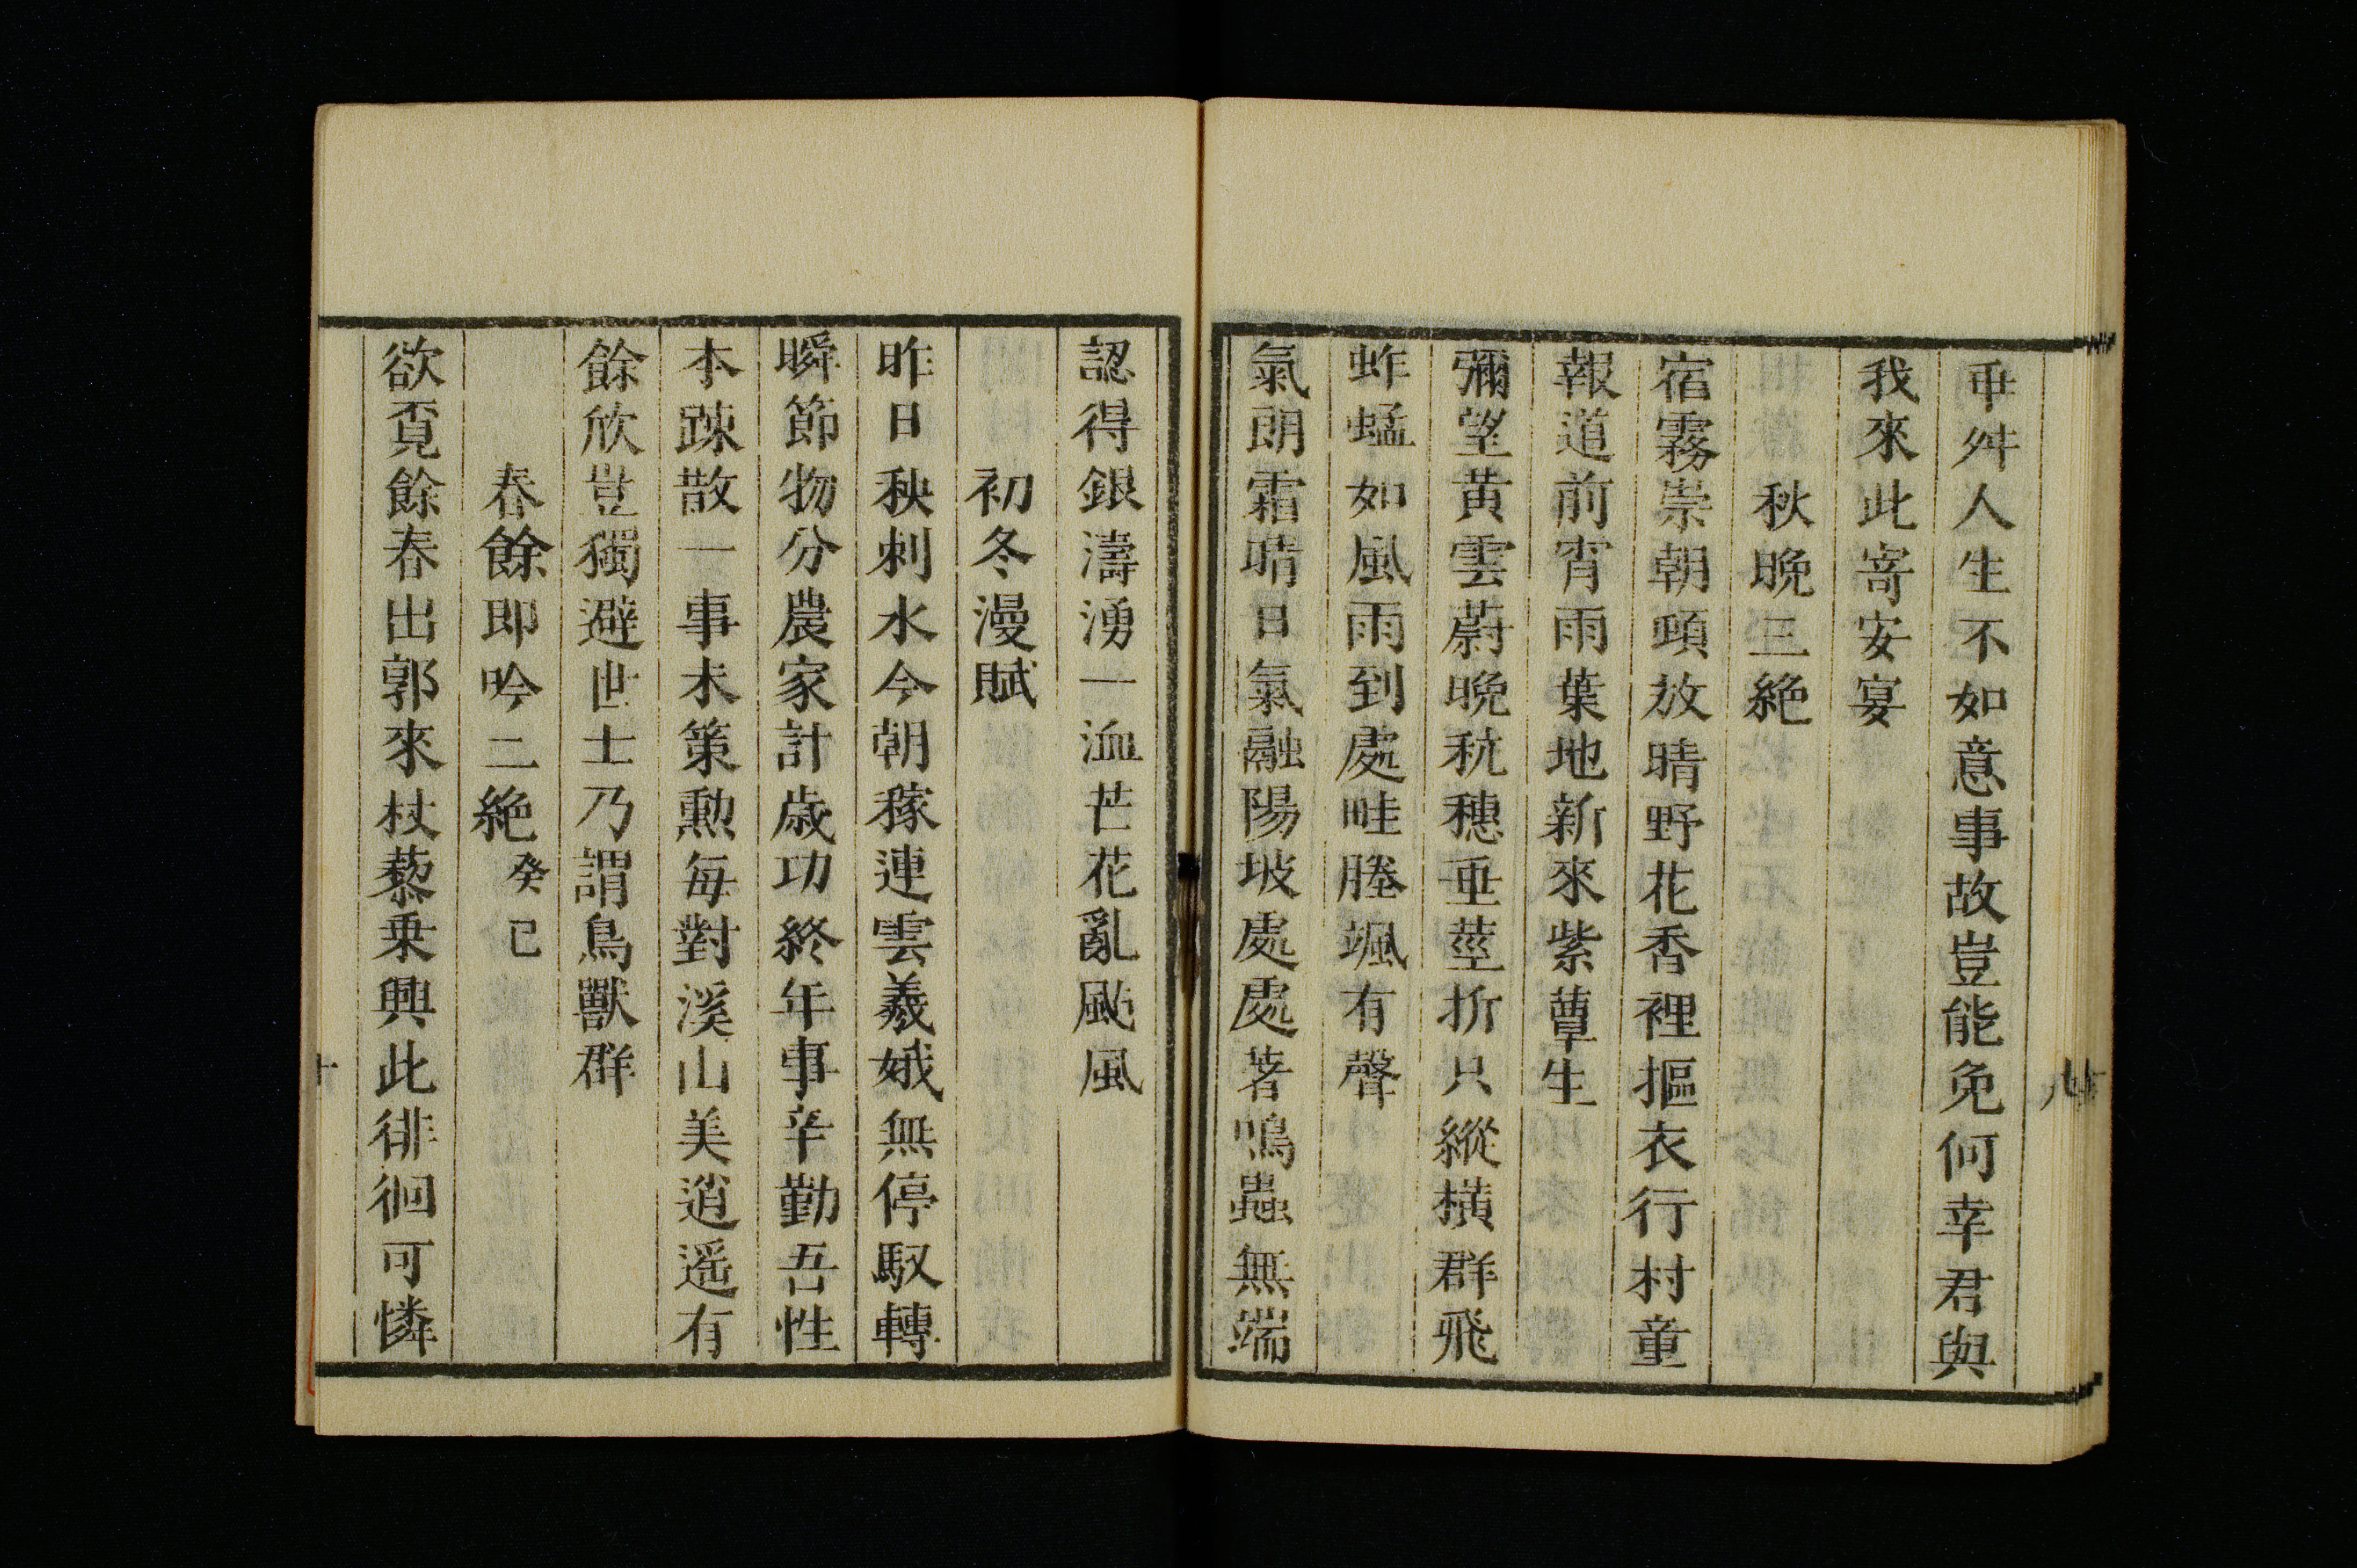 垂舛人生不如意事故豈能免何幸君與
我來此寄安宴
秋晩三絶
宿霧崇朝頭放晴野花香裡摳衣行村童
報道前宵雨葉地新來紫蕈生
彌望黄雲蔚晩秔穗垂莖折只縱横群飛
蚱蜢如風雨到處畦塍颯有聲
氣朗霜晴日氣融陽坡處處著鳴蟲無端
認得銀濤湧一洫芒花亂颭風
初冬漫賦
昨日秧刺水今朝稼連雲羲娥無停馭轉
瞬節物分農家計歳功終年事辛勤吾性
本踈散一事未策勲毎對溪山美逍遥有
餘欣豈獨避世士乃謂鳥獸群
春餘即吟二絶 癸巳
欲覔餘春出郭來杖藜乗興此徘徊可憐
十